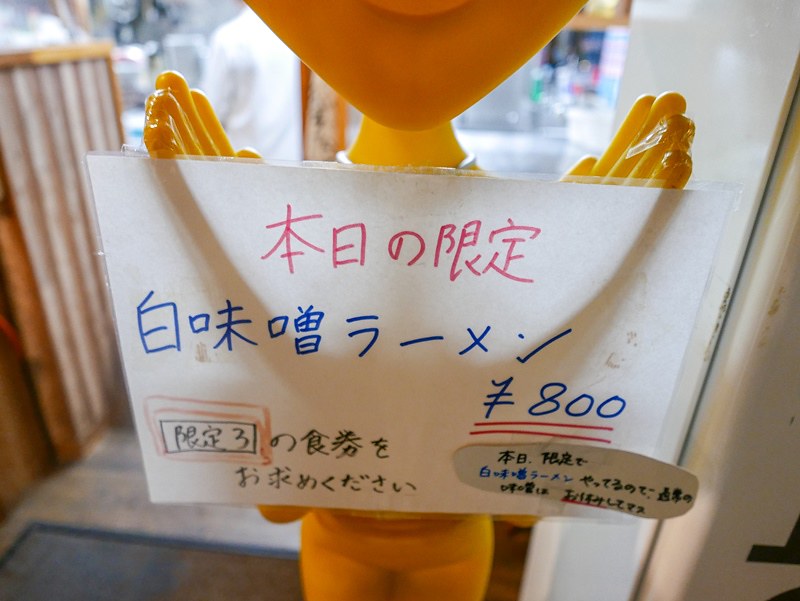 本日の限定
白味噌ラーメン
¥800
限定3 の食券を
お求めください
本日、限定で
白味噌ラーメン やってるので、通常の
味噌は お休みしてマス